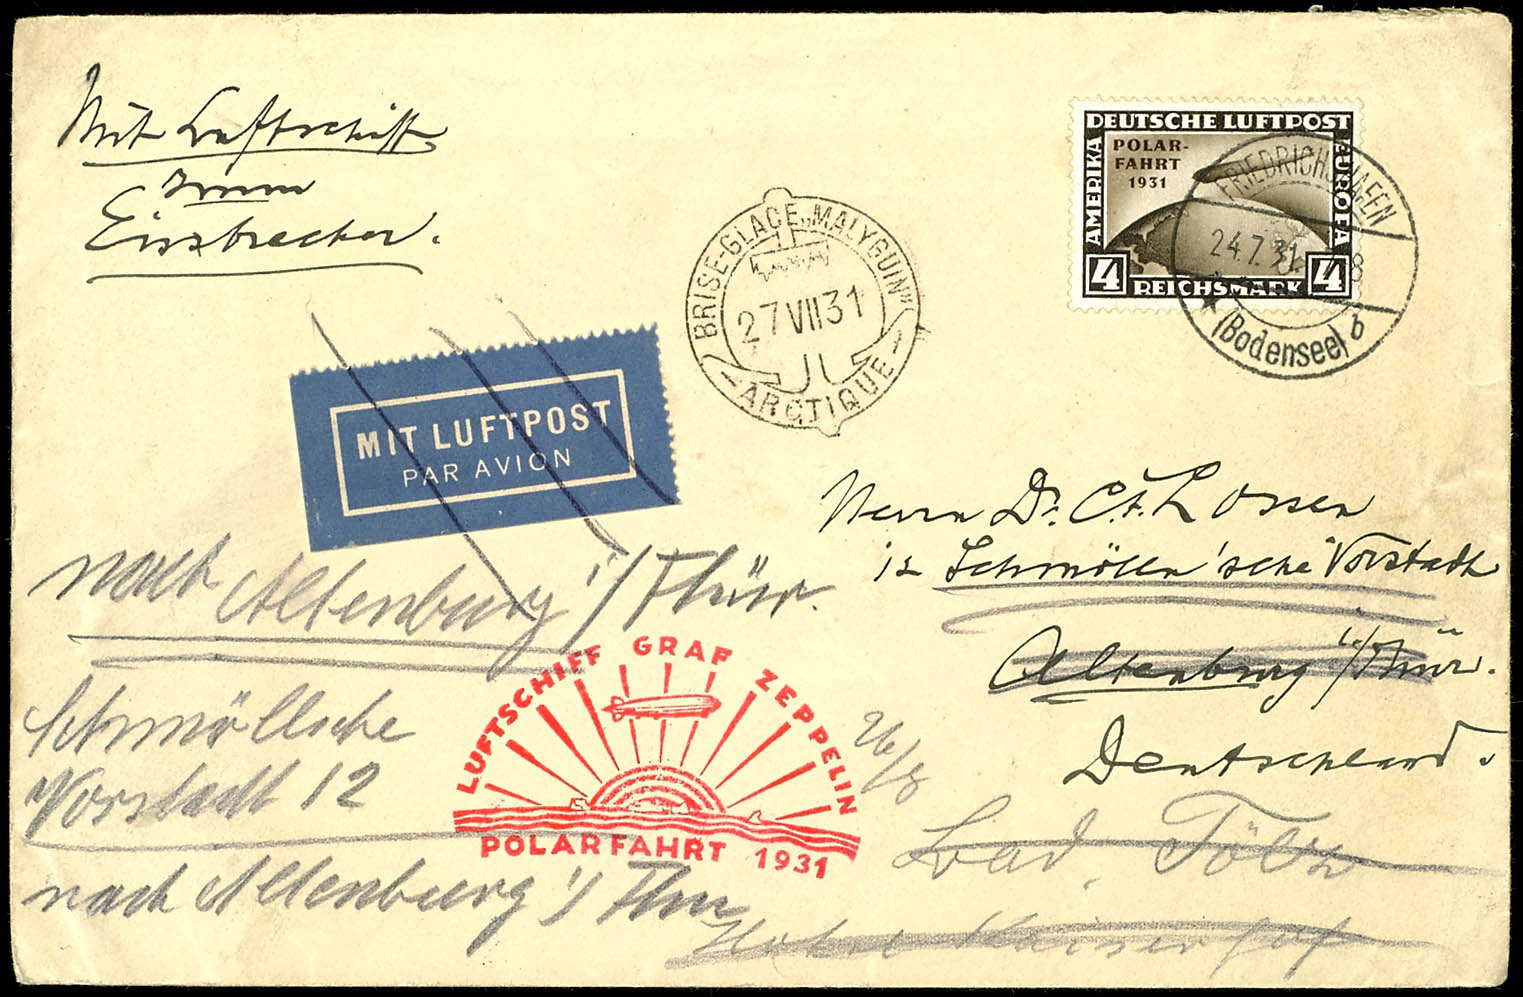 Mit Luftschiff
zum
Eisbrecher.
DEUTSCHE LUFTPOST
AMERIKA
EUROPA
POLAR-
FAHRT
1931
4 REICHSMARK 4
FRIEDRICHSHAFEN
24.7.31. 8
(Bodensee) b
BRISE-GLACE „MALYGUIN"
27 VII 31
—ARCTIQUE—
MIT LUFTPOST
PAR AVION
Herrn Dr. C. A. Lossen
12 Schmöllen'sche Vorstadt
Altenburg i/Thür.
Deutschland.
nach Altenburg i/Thür.
Schmöllsche
Vorstadt 12
nach Altenburg i/Thür
LUFTSCHIFF GRAF ZEPPELIN
POLARFAHRT 1931
26/8
Bad. Tölz
Hotel Kaiserhof